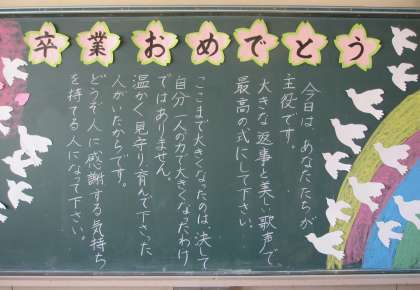 卒業おめでとう
今日は、あなたたちが
主役です。
大きな返事と美しい歌声で、
最高の式にして下さい。
ここまで大きくなったのは、決して
自分一人の力で大きくなったわけ
ではありません。
温かく見守り、育んで下さった
人がいたからです。
どうぞ人に感謝する気持ち
を持てる人になって下さい。